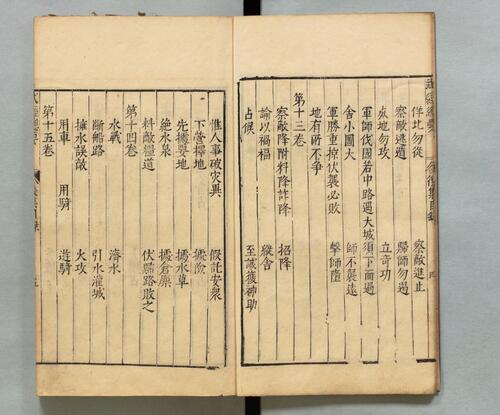 佯北勿從 察敵進止
察敵逃遁 歸師勿遏
死地勿攻 立奇功
軍師伐國若中路遇大城須下而過
舍小圖大 師不襲遠
軍勝重掠伏襲必敗 擊師墮
地有所不爭
第十三卷
察敵降附料降詐降 招降
諭以禍福 縱舍
占候 至誠獲神助
推人事破災異 假託安衆
下營擇地 據險
先據要地 據水草
絕水泉 據倉廩
料敵糧道 伏歸路敗之
第十四卷
水戰 濟水
斷船路 引水灌城
擁水誤敵 火攻
用車 用騎 遊騎
第十五卷